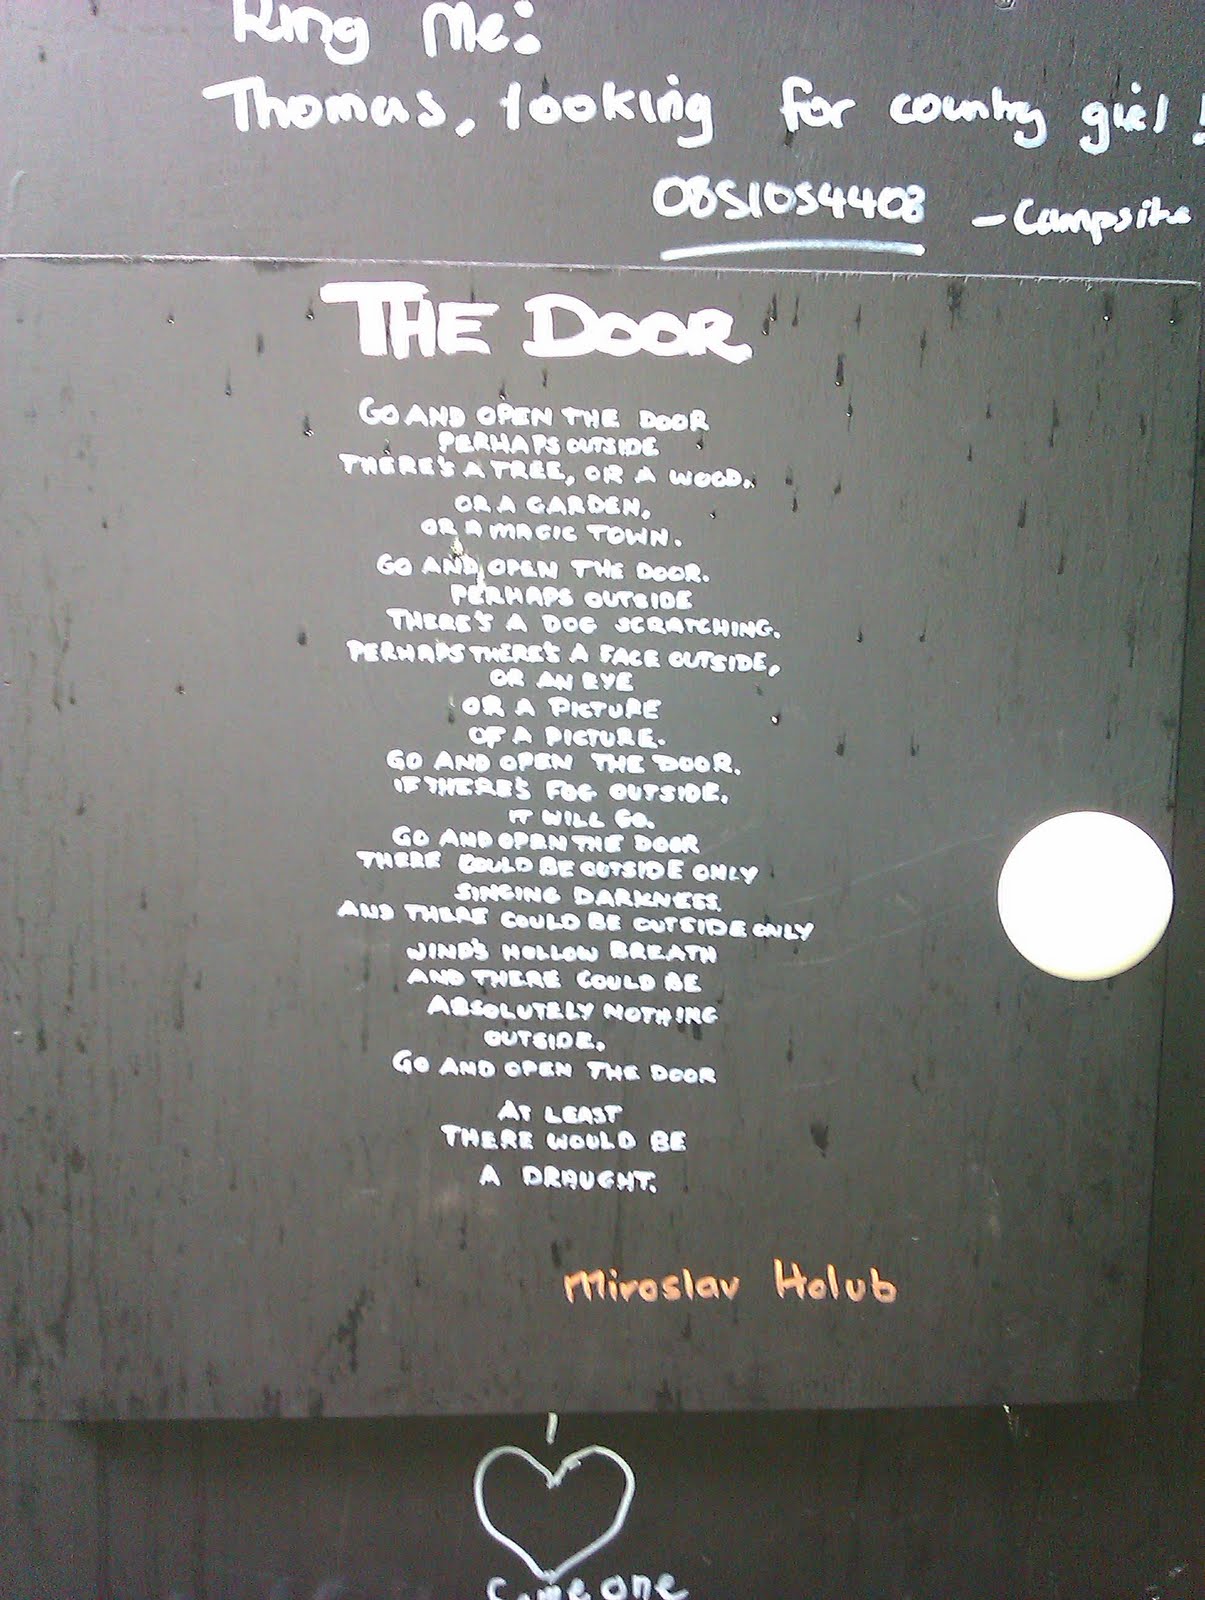 Ring Me:
Thomas, looking for country girl!
0851054408 - Campsite
THE DOOR
GO AND OPEN THE DOOR
PERHAPS OUTSIDE
THERE'S A TREE, OR A WOOD.
OR A GARDEN,
OR A MAGIC TOWN.
GO AND OPEN THE DOOR.
PERHAPS OUTSIDE
THERE'S A DOG SCRATCHING.
PERHAPS THERE'S A FACE OUTSIDE,
OR AN EYE
OR A PICTURE
OF A PICTURE.
GO AND OPEN THE DOOR.
IF THERE'S FOG OUTSIDE.
IT WILL GO.
GO AND OPEN THE DOOR
THERE COULD BE OUTSIDE ONLY
SINGING DARKNESS.
AND THERE COULD BE OUTSIDE ONLY
WIND'S HOLLOW BREATH
AND THERE COULD BE
ABSOLUTELY NOTHING
OUTSIDE.
GO AND OPEN THE DOOR
AT LEAST
THERE WOULD BE
A DRAUGHT.
Miroslav Holub
I
Someone